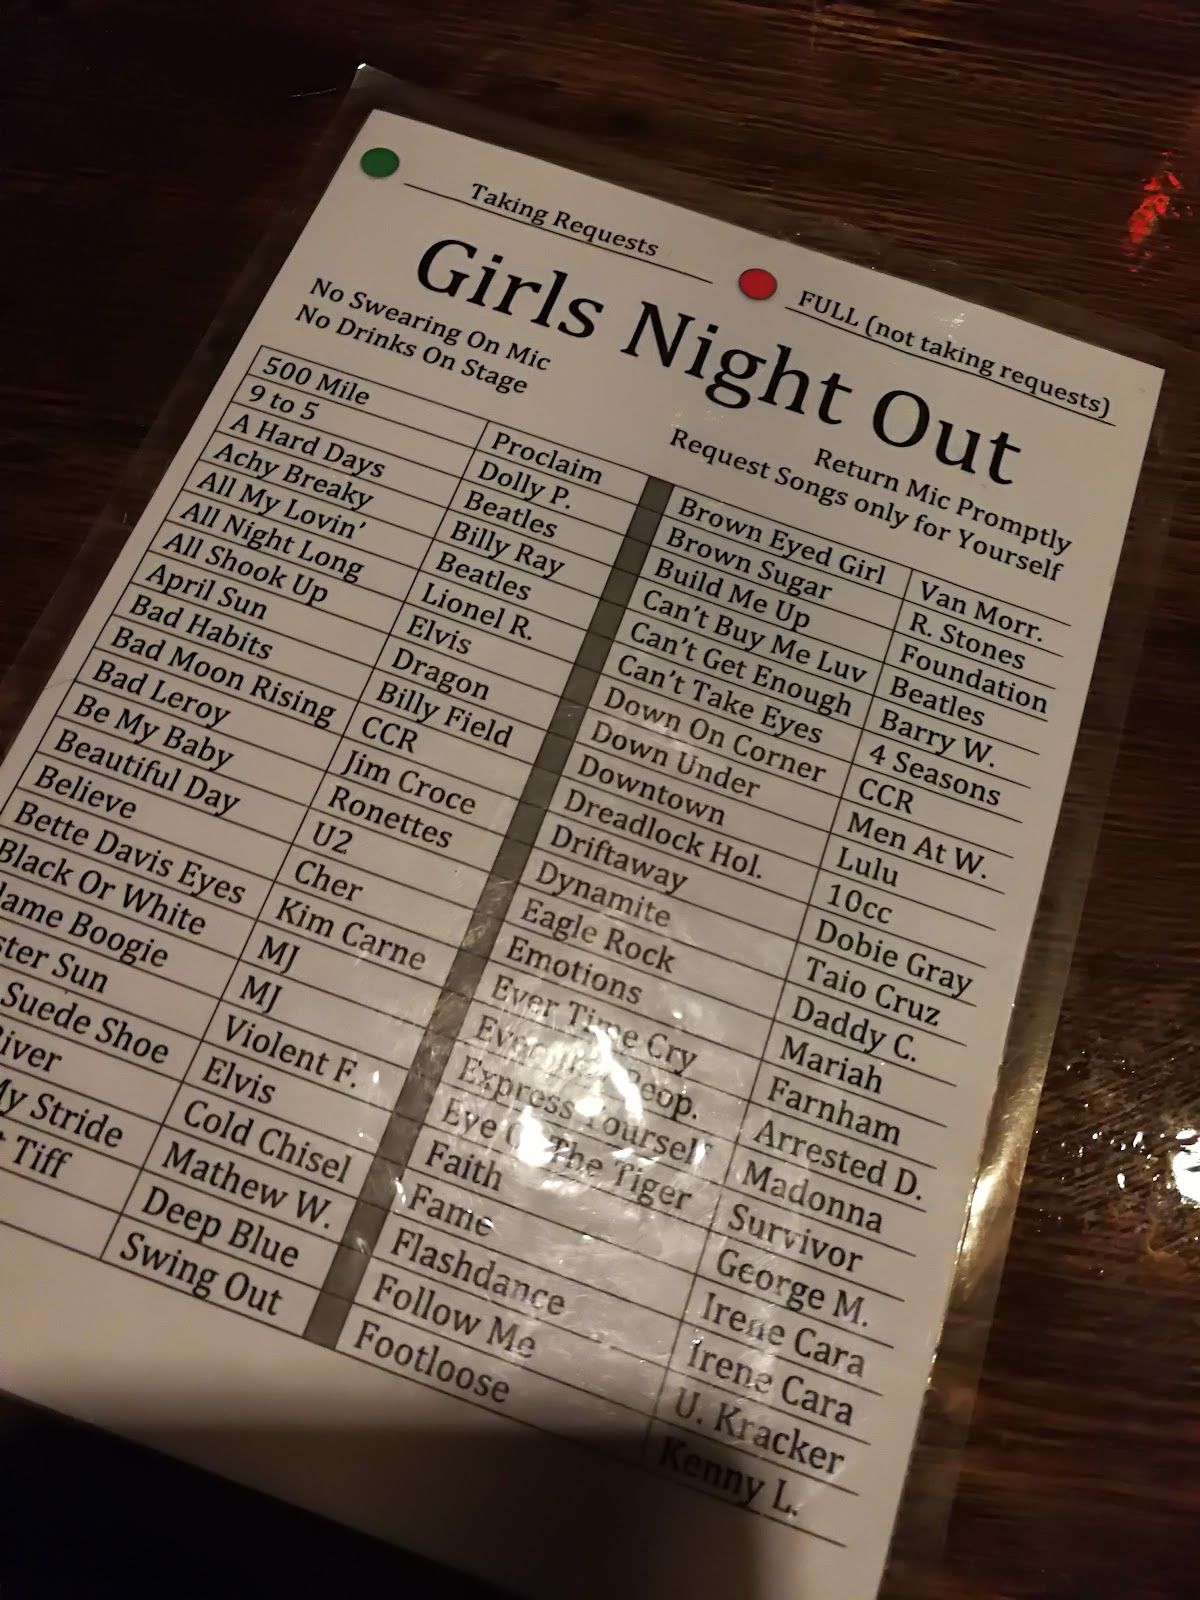 Taking Requests FULL (not taking requests)
Girls Night Out
No Swearing On Mic Return Mic Promptly
No Drinks On Stage Request Songs only for Yourself
500 Mile Proclaim Brown Eyed Girl Van Morr.
9 to 5 Dolly P. Brown Sugar R. Stones
A Hard Days Beatles Build Me Up Foundation
Achy Breaky Billy Ray Can't Buy Me Luv Beatles
All My Lovin' Beatles Can't Get Enough Barry W.
All Night Long Lionel R. Can't Take Eyes 4 Seasons
All Shook Up Elvis Down On Corner CCR
April Sun Dragon Down Under Men At W.
Bad Habits Billy Field Downtown Lulu
Bad Moon Rising CCR Dreadlock Hol. 10cc
Bad Leroy Jim Croce Driftaway Dobie Gray
Be My Baby Ronettes Dynamite Taio Cruz
Beautiful Day U2 Eagle Rock Daddy C.
Believe Cher Emotions Mariah
Bette Davis Eyes Kim Carne Ever Time Cry Farnham
Black Or White MJ Peop. Arrested D.
Boogie MJ Express Yourself Madonna
Sun Violent F. Eye Of The Tiger Survivor
Suede Shoe Elvis Faith George M.
Cold Chisel Fame Irene Cara
Stride Mathew W. Flashdance Irene Cara
Tiff Deep Blue Follow Me U. Kracker
Swing Out Footloose Kenny L.